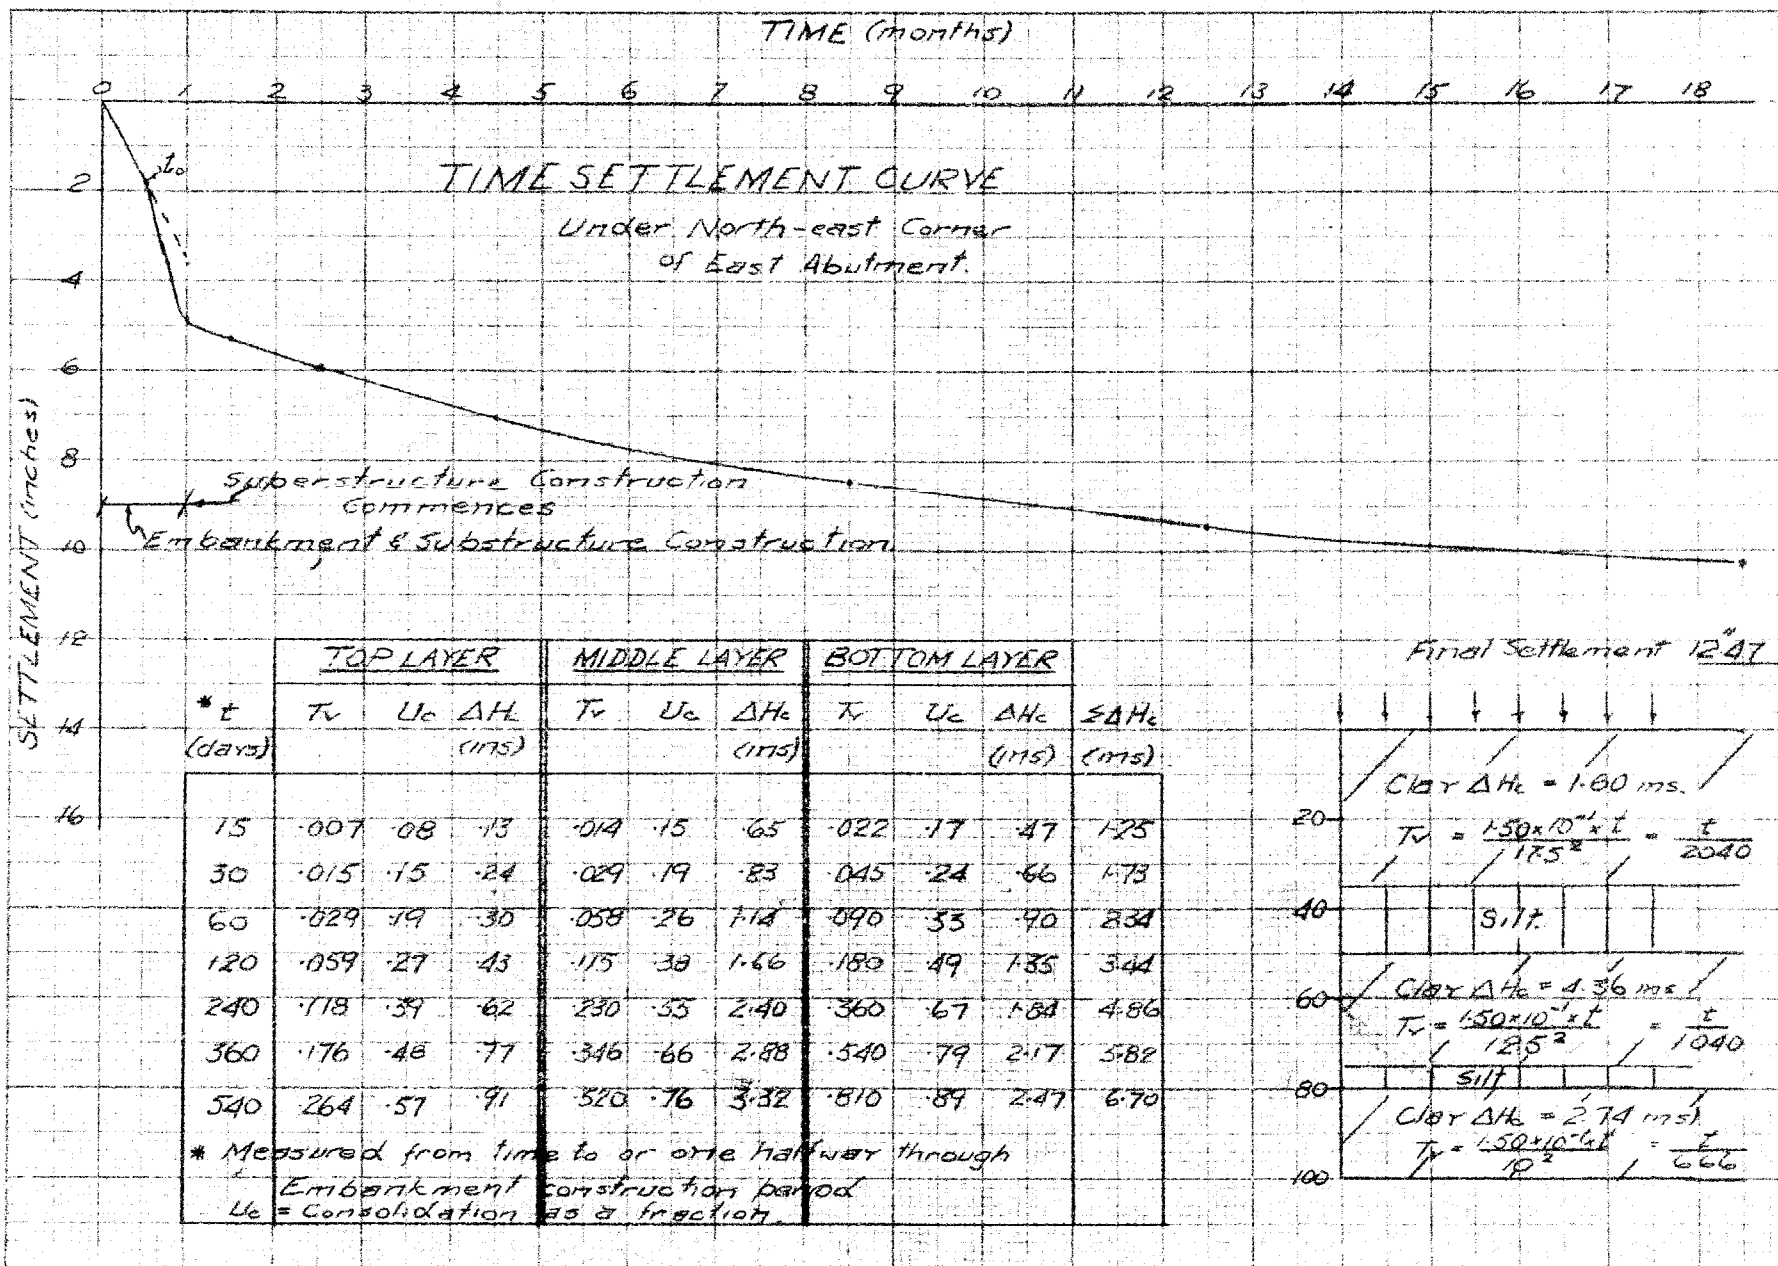 TIME (months)
0 1 2 3 4 5 6 7 8 9 10 11 12 13 14 15 16 17 18
to
2
TIME SETTLEMENT CURVE
Under North-east Corner
of East Abutment.
4
6
8
SETTLEMENT (inches)
Superstructure Construction
Commences
Embankment & Substructure Construction
10
12
14
16
Final Settlement 12.47"
TOP LAYER MIDDLE LAYER BOTTOM LAYER
* t Tv Uc ΔHc Tv Uc ΔHc Tv Uc ΔHc ΣΔHc
(days) (ins) (ins) (ins) (ins)
15 .007 .08 .13 .014 .15 .65 .022 .17 .47 1.25
30 .015 .15 .24 .029 .19 .83 .045 .24 .66 1.73
60 .029 .19 .30 .058 .26 1.14 .090 .33 .90 2.34
120 .059 .27 .43 .115 .38 1.66 .180 .49 1.35 3.44
240 .118 .39 .62 .230 .55 2.40 .360 .67 1.84 4.86
360 .176 .48 .77 .346 .66 2.88 .540 .79 2.17 5.82
540 .264 .57 .91 .520 .76 3.32 .810 .89 2.47 6.70
* Measured from time to or one halfway through
Embankment construction period
Uc = Consolidation as a fraction.
Clay ΔHc = 1.60 ins.
20
Tv = 1.50×10⁻¹×t / 17.5² = t / 2040
40
Silt
Clay ΔHc = 4.36 ins
60
Tv = 1.50×10⁻¹×t / 12.5² = t / 1040
Silt
80
Clay ΔHc = 2.74 ins
Tv = 1.50×10⁻¹×t / 10² = t / 666
100